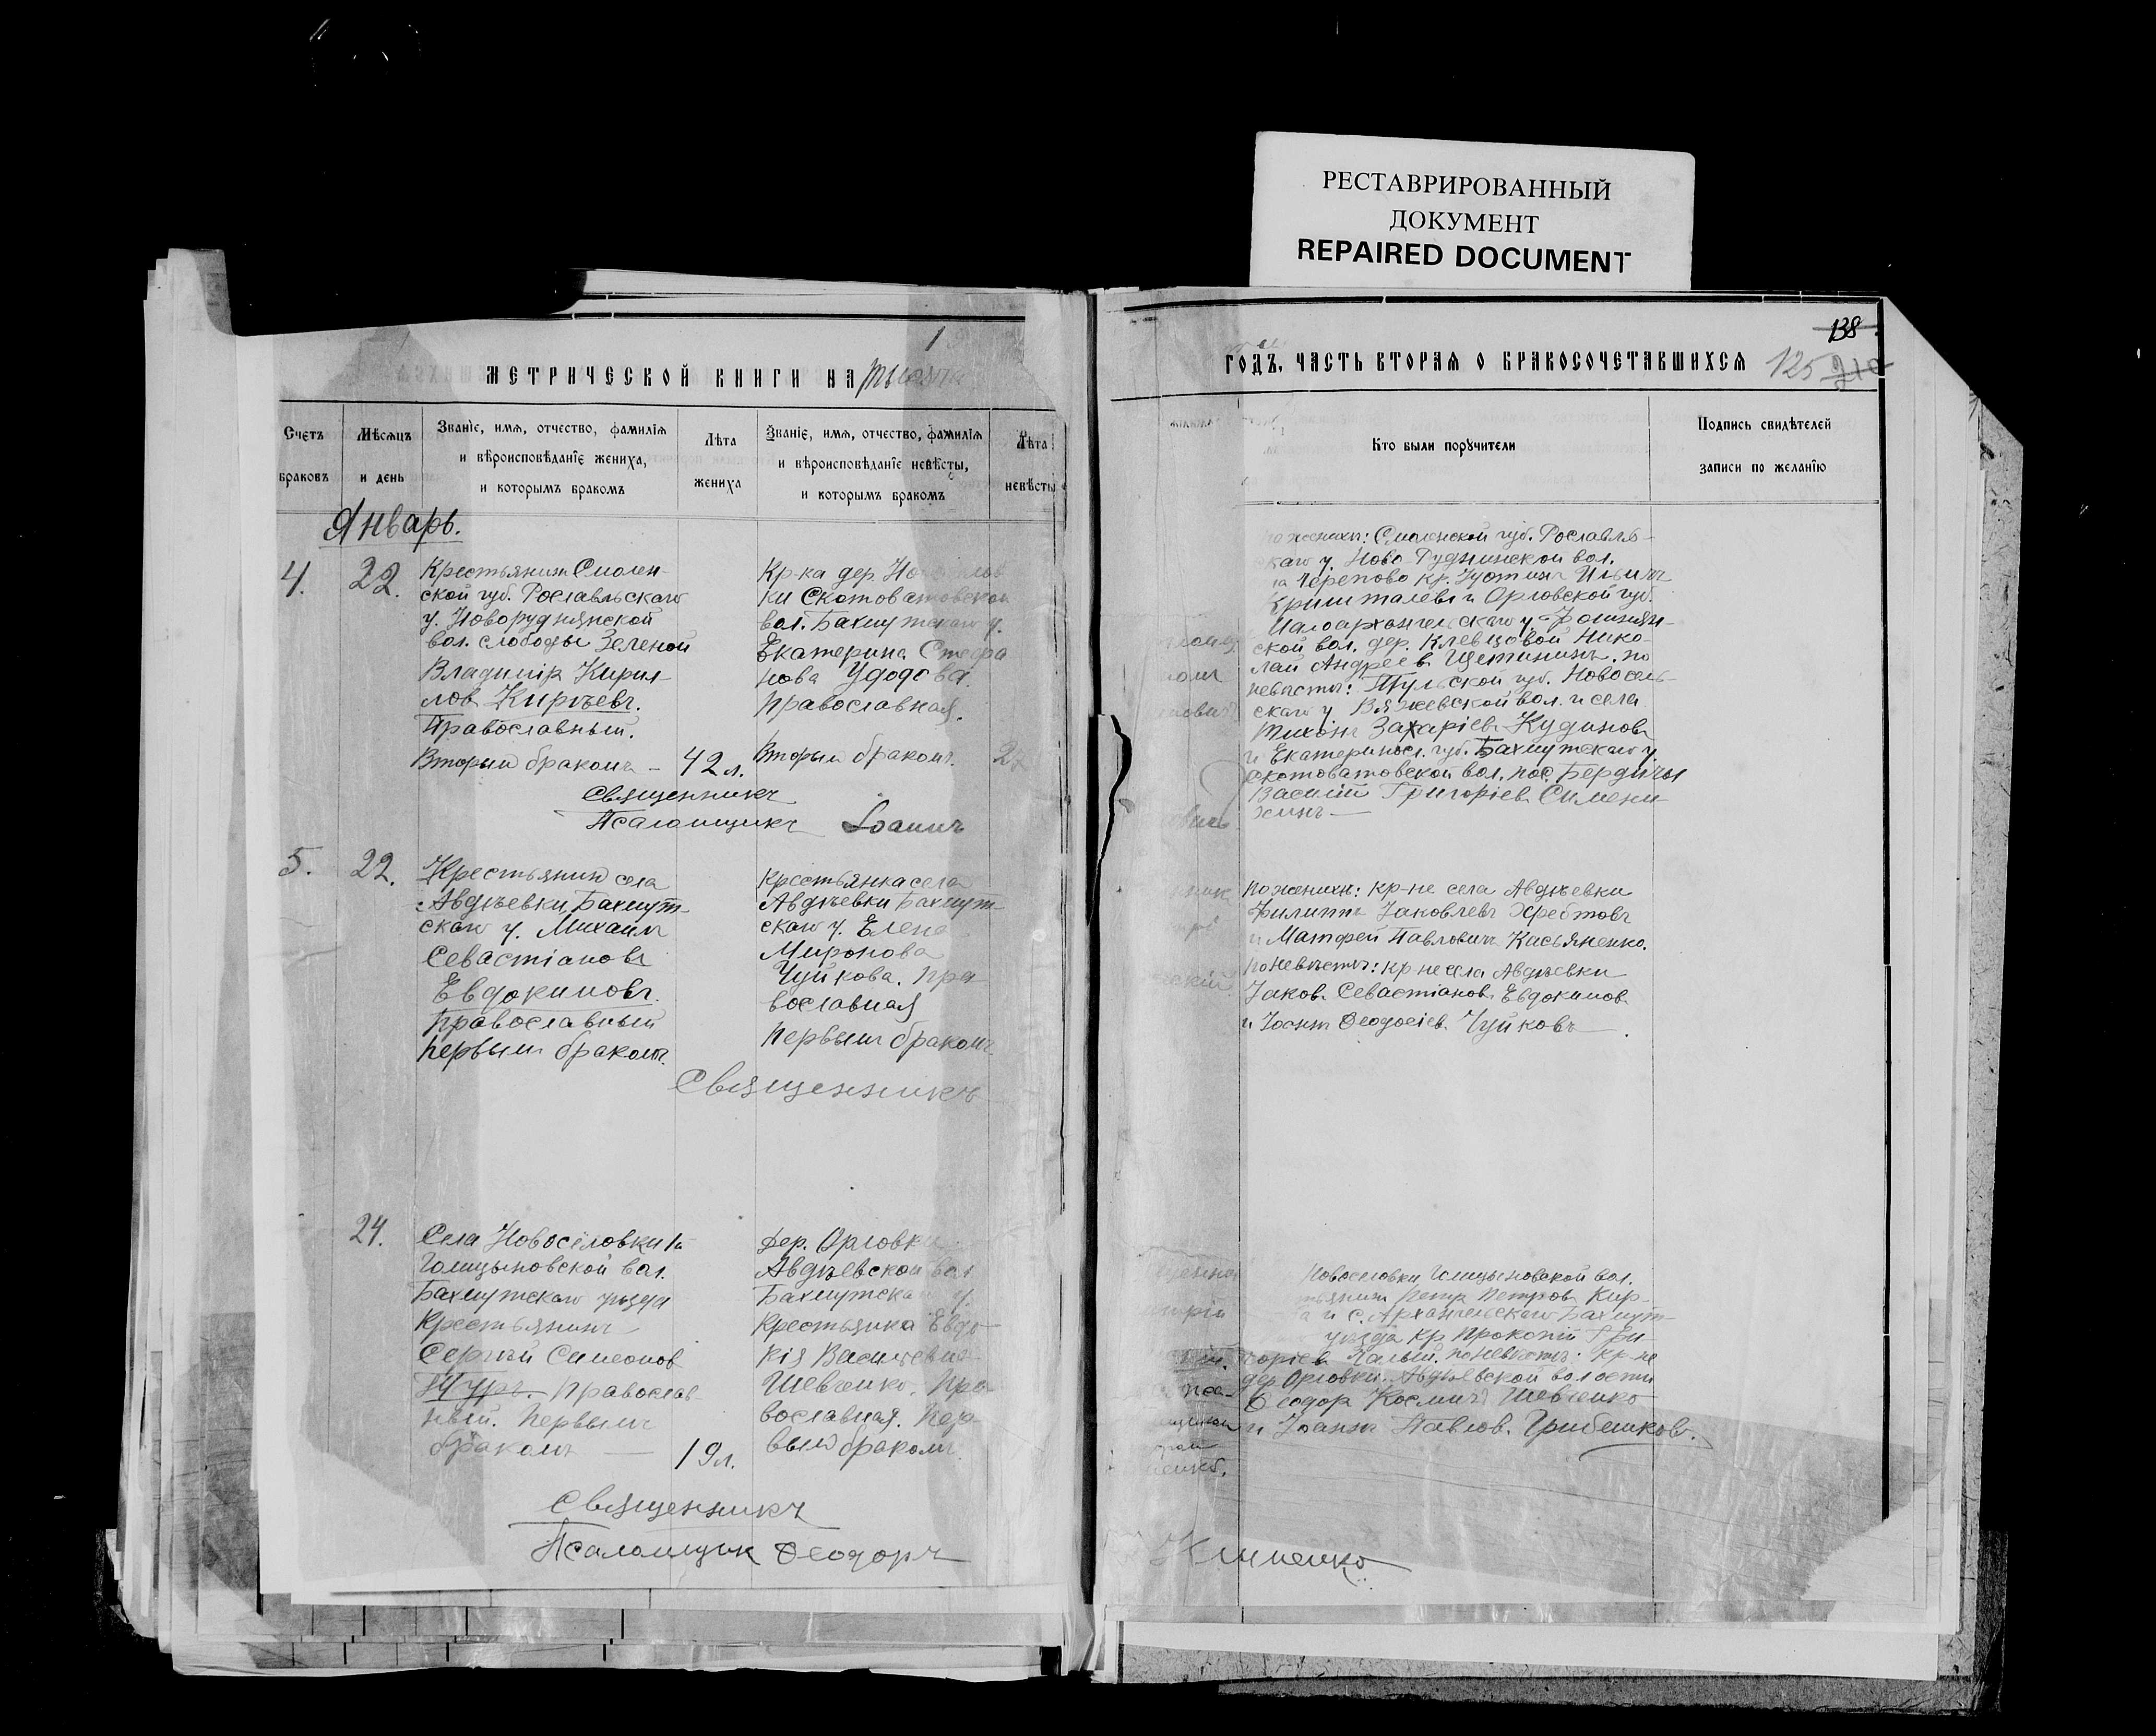 РЕСТАВРИРОВАННЫЙ
ДОКУМЕНТ
REPAIRED DOCUMENT
1
МЕТРИЧЕСКОЙ КНИГИ НА
Счетъ
браковъ
Мѣсяцъ
и день
Званіе, имя, отчество, фамилія
и вѣроисповѣданіе жениха,
и которымъ бракомъ
Лѣта
жениха
Званіе, имя, отчество, фамилія
и вѣроисповѣданіе невѣсты,
и которымъ бракомъ
Лѣта
невѣсты
Январь.
4.
22.
Крестьянинъ Смолен-
ской губ. Рославльскаго
у. Новоруднянской
вол. слободы Зеленой
Владиміръ Кирил-
лов Киреевъ.
Православный.
Вторым бракомъ - 42 л.
Кр-ка дер.
ки Скотоватовской
вол. Бахмутскаго у.
Екатерина Стефа
нова Удодова
Православная.
Вторым бракомъ.
Священникъ
Псаломщикъ Іоаннъ
5.
22.
Крестьянин села
Авдѣевки Бахмут-
скаго у. Михаилъ
Севастіановъ
Евдокимовъ.
Православный
первым бракомъ.
крестьянка села
Авдѣевки Бахмут-
скаго у. Елена
Миронова
Чуйкова. Пра-
вославная
Первым бракомъ
Священникъ
24.
Села Новосёловки 1й
Голицыновской вол.
Бахмутскаго уѣзда
Крестьянинъ
Сергѣй Симеонов
Православ-
ный. Первымъ
бракомъ — 19 л.
Дер. Орловки
Авдѣевской вол
Бахмутскаго у.
Крестьянка Евдо-
кія Васильевна
Шевченко. Пра-
вославная. Пер-
вым бракомъ
Священникъ
Псаломщик Ѳеодоръ
138
ГОДЪ, ЧАСТЬ ВТОРАЯ О БРАКОСОЧЕТАВШИХСЯ
125
Кто были поручители
Подпись свидѣтелей
записи по желанію
женихѣ: Смоленской губ. Рославль-
скаго у. Ново-Руднинской вол.
Черепово кр. Устинъ Ильинъ
и Орловской губ.
Малоархангельскаго у.
ской вол. дер. Клевцовой Нико-
лай Андреев Щетининъ. по
невѣстѣ: Тульской губ. Новосиль-
скаго у. Вяжевской вол. и села
Тихонъ Захаріев Кудинов
и Екатеринос. губ. Бахмутскаго у.
Скотоватовской вол. пос. Бердичи
Василій Григоріев Симени-
хинъ —
По женихѣ: кр-не села Авдѣевки
Филиппъ Іаковлевъ Хребтовъ
и Матфей Павловичъ Касьяненко.
По невѣстѣ: кр-не села Авдѣевки
Іаков Севастіанов Евдокимов
и Іоаннъ Ѳеодосіев Чуйковъ
Новоселовки Голицыновской вол.
Петръ Петров Кир-
и с. Архангельскаго Бахмут-
уѣзда кр Прокопій Гри-
горіев Малый. по невѣстѣ: кр-не
дер Орловки Авдѣевской волости
Ѳеодор Космич Шевченко
и Іоаннъ Павлов. Грибешков.